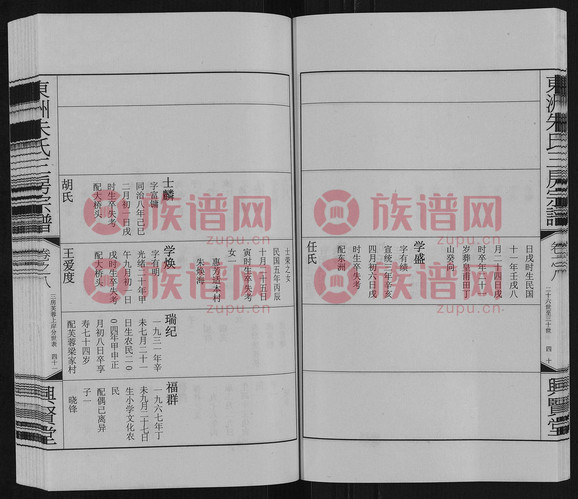 東洲朱氏三房宗譜
卷之八
二十六世至三十世
四十
興賢堂
日戌时生民国
十一年壬戌八
月二十四日戌
时卒年三十
岁葬皇甫田丁
山癸向
学盛
字有缓
宣统三年辛亥
四月初六日戌
时生卒失考
配东洲
任氏
士荣之女
民国五年丙辰
十月二十五日
寅时生卒失考
女一
惠芳适本村
朱焕海
士麟
字富镛
同治八年己巳
二月初一日戌
时生卒失考
配大桥头
胡氏
学焕
字有明
光绪三十年甲
午九月初一日
戌时生卒失考
配大桥头
王爱度
瑞纪
一九三一年辛
未七月二十一
日生农民二0
0四年甲申正
月初八日卒享
寿七十四岁
配芙蓉梁家村
福群
一九六七年丁
未九月二十七日
生小学文化农
民
配偶已离异
子一
晓锋
東洲朱氏三房宗譜
卷之八
三房芙蓉上岸分世表
四十一
興賢堂
族谱网
族谱网
族谱网
族谱网